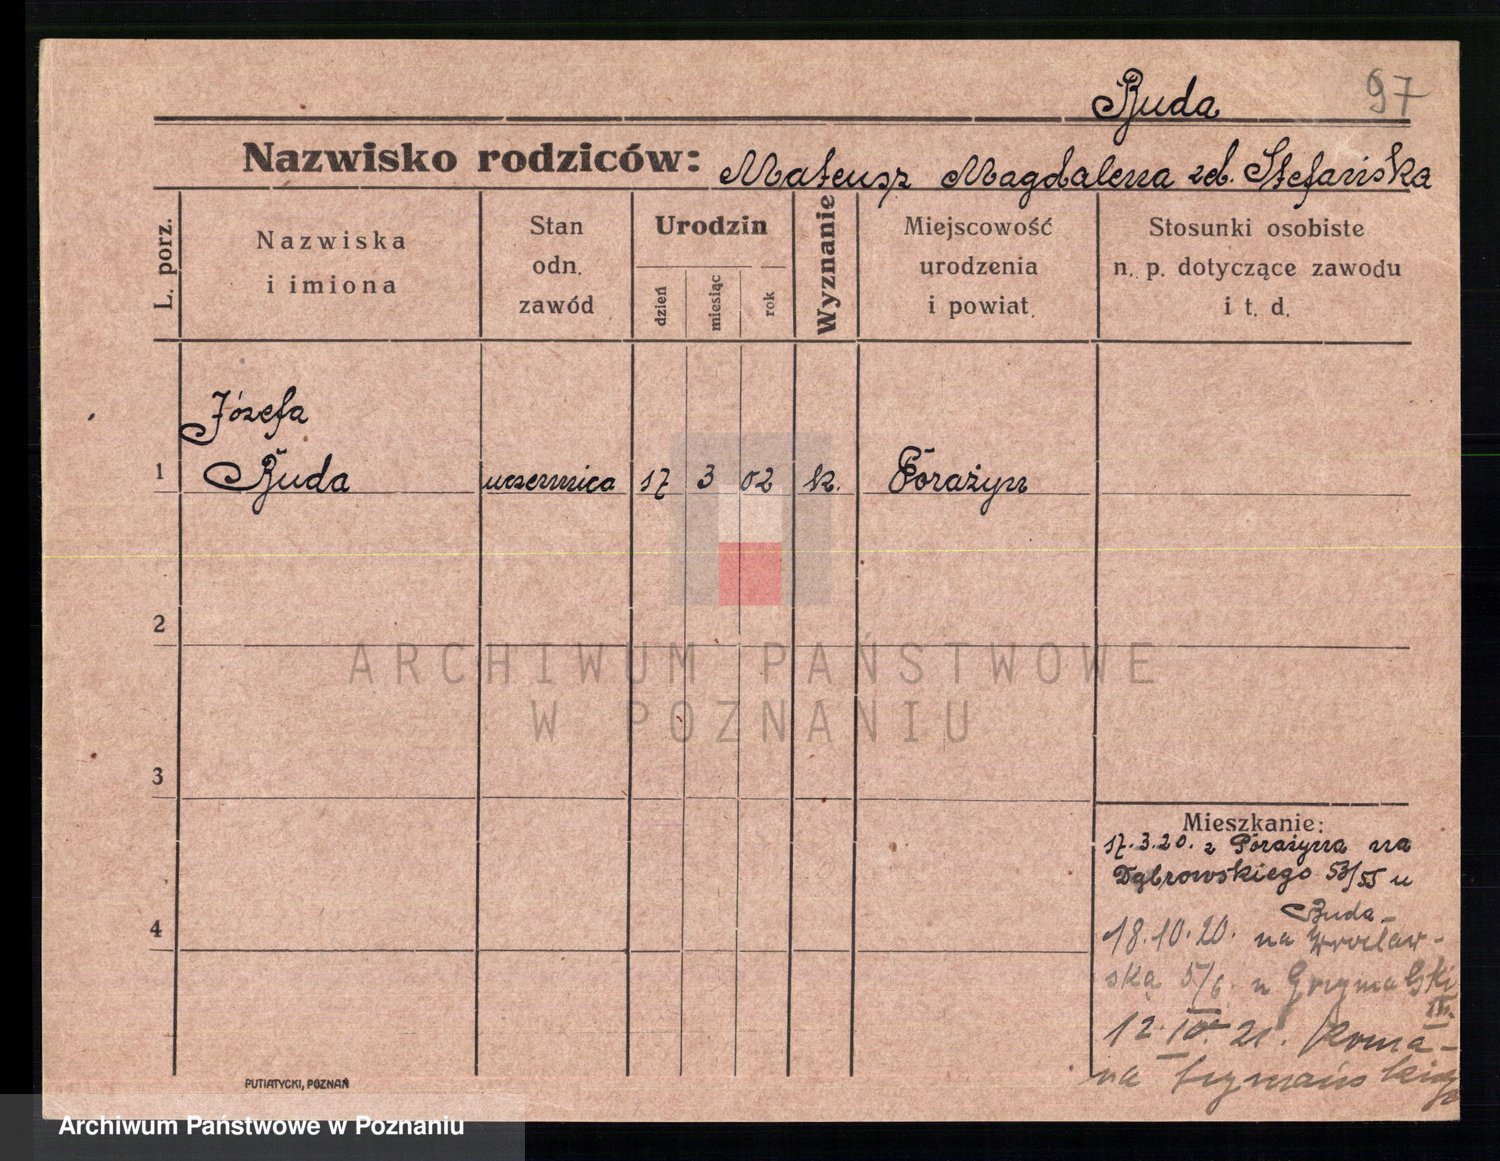 Buda
97
Nazwisko rodziców: Mateusz Magdalena zd. Stefańska
L. porz.
Nazwiska
i imiona
Stan
odn.
zawód
Urodzin
dzień
miesiąc
rok
Wyznanie
Miejscowość
urodzenia
i powiat.
Stosunki osobiste
n. p. dotyczące zawodu
i t. d.
Józefa
1 Buda uczennica 17 3 02 k. Porażyn
2
ARCHIWUM PAŃSTWOWE
W POZNANIU
3
4
Mieszkanie:
17.3.20. z Porażyna na
Dąbrowskiego 53/55 u
Buda
18.10.20. na Wrocław-
ską 5/6. u Grzymalski
III.
12. IV. 21. Roma-
na Szymańskiego
PUTIATYCKI, POZNAŃ
Archiwum Państwowe w Poznaniu